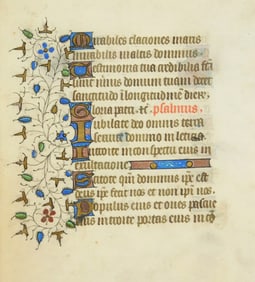 Mirabiles elaciones maris
mirabilis in altis dominus.
Testimonia tua credibilia
sunt nimis domum tuam decet
sanctitudo in longitudine dierum
Gloria patri. et. psalmus.
Jubilate deo omnis terra
servite domino in leticia.
Introite in conspectu eius in
exultacione
Scitote qm dominus ipe est
deus ipe fecit nos et non ipi nos.
Populus eius et oues pascue
eius introite portas eius in